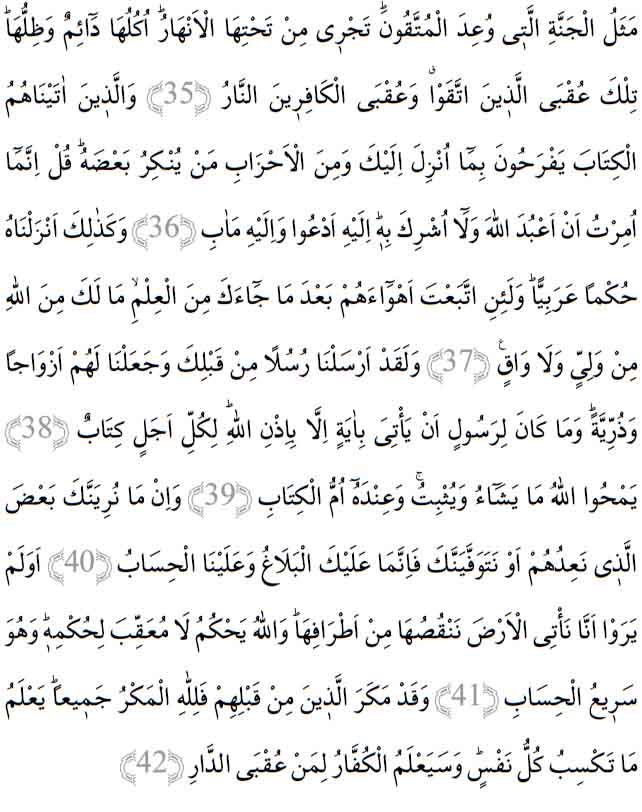 مَثَلُ الْجَنَّةِ الَّتٖى وُعِدَ الْمُتَّقُونَؕ تَجْرٖى مِنْ تَحْتِهَا الْاَنْهَارُؕ اُكُلُهَا دَٓائِمٌ وَظِلُّهَاؕ
تِلْكَ عُقْبَى الَّذٖينَ اتَّقَوْاۗ وَعُقْبَى الْكَافِرٖينَ النَّارُ ﴿35﴾ وَالَّذٖينَ اٰتَيْنَاهُمُ
الْكِتَابَ يَفْرَحُونَ بِمَٓا اُنْزِلَ اِلَيْكَ وَمِنَ الْاَحْزَابِ مَنْ يُنْكِرُ بَعْضَهُؕ قُلْ اِنَّمَٓا
اُمِرْتُ اَنْ اَعْبُدَ اللهَ وَلَٓا اُشْرِكَ بِهٖؕ اِلَيْهِ اَدْعُوا وَاِلَيْهِ مَاٰبِ ﴿36﴾ وَكَذٰلِكَ اَنْزَلْنَاهُ
حُكْمًا عَرَبِيًّاؕ وَلَئِنِ اتَّبَعْتَ اَهْوَٓاءَهُمْ بَعْدَ مَا جَٓاءَكَ مِنَ الْعِلْمِۙ مَا لَكَ مِنَ اللهِ
مِنْ وَلِىٍّ وَلَا وَاقٍ ࣖ ﴿37﴾ وَلَقَدْ اَرْسَلْنَا رُسُلًا مِنْ قَبْلِكَ وَجَعَلْنَا لَهُمْ اَزْوَاجًا
وَذُرِّيَّةًؕ وَمَا كَانَ لِرَسُولٍ اَنْ يَاْتِىَ بِاٰيَةٍ اِلَّا بِاِذْنِ اللهِؕ لِكُلِّ اَجَلٍ كِتَابٌ ﴿38﴾
يَمْحُوا اللهُ مَا يَشَٓاءُ وَيُثْبِتُۚ وَعِنْدَهُٓ اُمُّ الْكِتَابِ ﴿39﴾ وَاِنْ مَا نُرِيَنَّكَ بَعْضَ
الَّذٖى نَعِدُهُمْ اَوْ نَتَوَفَّيَنَّكَ فَاِنَّمَا عَلَيْكَ الْبَلَاغُ وَعَلَيْنَا الْحِسَابُ ﴿40﴾ اَوَلَمْ
يَرَوْا اَنَّا نَاْتِى الْاَرْضَ نَنْقُصُهَا مِنْ اَطْرَافِهَاؕ وَاللهُ يَحْكُمُ لَا مُعَقِّبَ لِحُكْمِهٖؕ وَهُوَ
سَرٖيعُ الْحِسَابِ ﴿41﴾ وَقَدْ مَكَرَ الَّذٖينَ مِنْ قَبْلِهِمْ فَلِلّٰهِ الْمَكْرُ جَمٖيعاًؕ يَعْلَمُ
مَا تَكْسِبُ كُلُّ نَفْسٍؕ وَسَيَعْلَمُ الْكُفَّارُ لِمَنْ عُقْبَى الدَّارِ ﴿42﴾